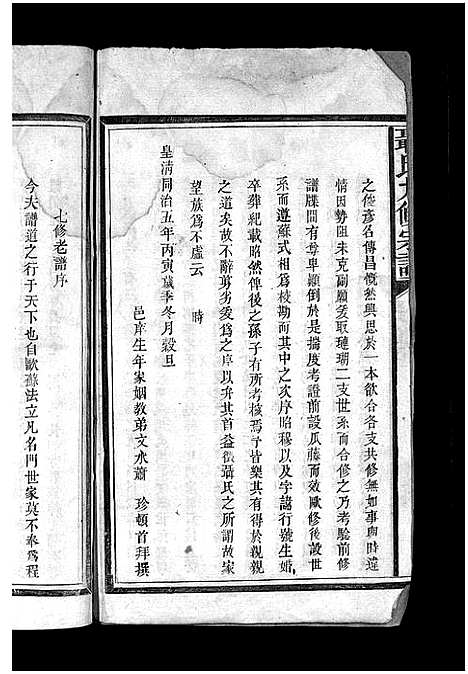 聶氏九修宗譜
之俊彥名傳昌慨然興思於一本欲合各支共修無如事與時違
情因勢阻未克副願爰取璉瑚二支世系而合修之乃考驗前修
譜牒間有尊卑顛倒於是揣度考證前設瓜藤而效歐修後設世
系而遵蘇式相爲校勘而其中之次序昭穆以及字諱行號生婚
卒葬紀載昭然俾後之孫子有所考核焉予皆樂其有得於親親
之道矣故不辭剪劣爰爲之序以弁其首益徵聶氏之所謂故家
望族爲不虛云
時
皇清同治五年丙寅歲季冬月穀旦
邑庠生年家姻教弟文水蕭 珍頓首拜撰
七修老譜序
今夫譜道之行于天下也自歐蘇法立凡名門世家莫不奉爲程